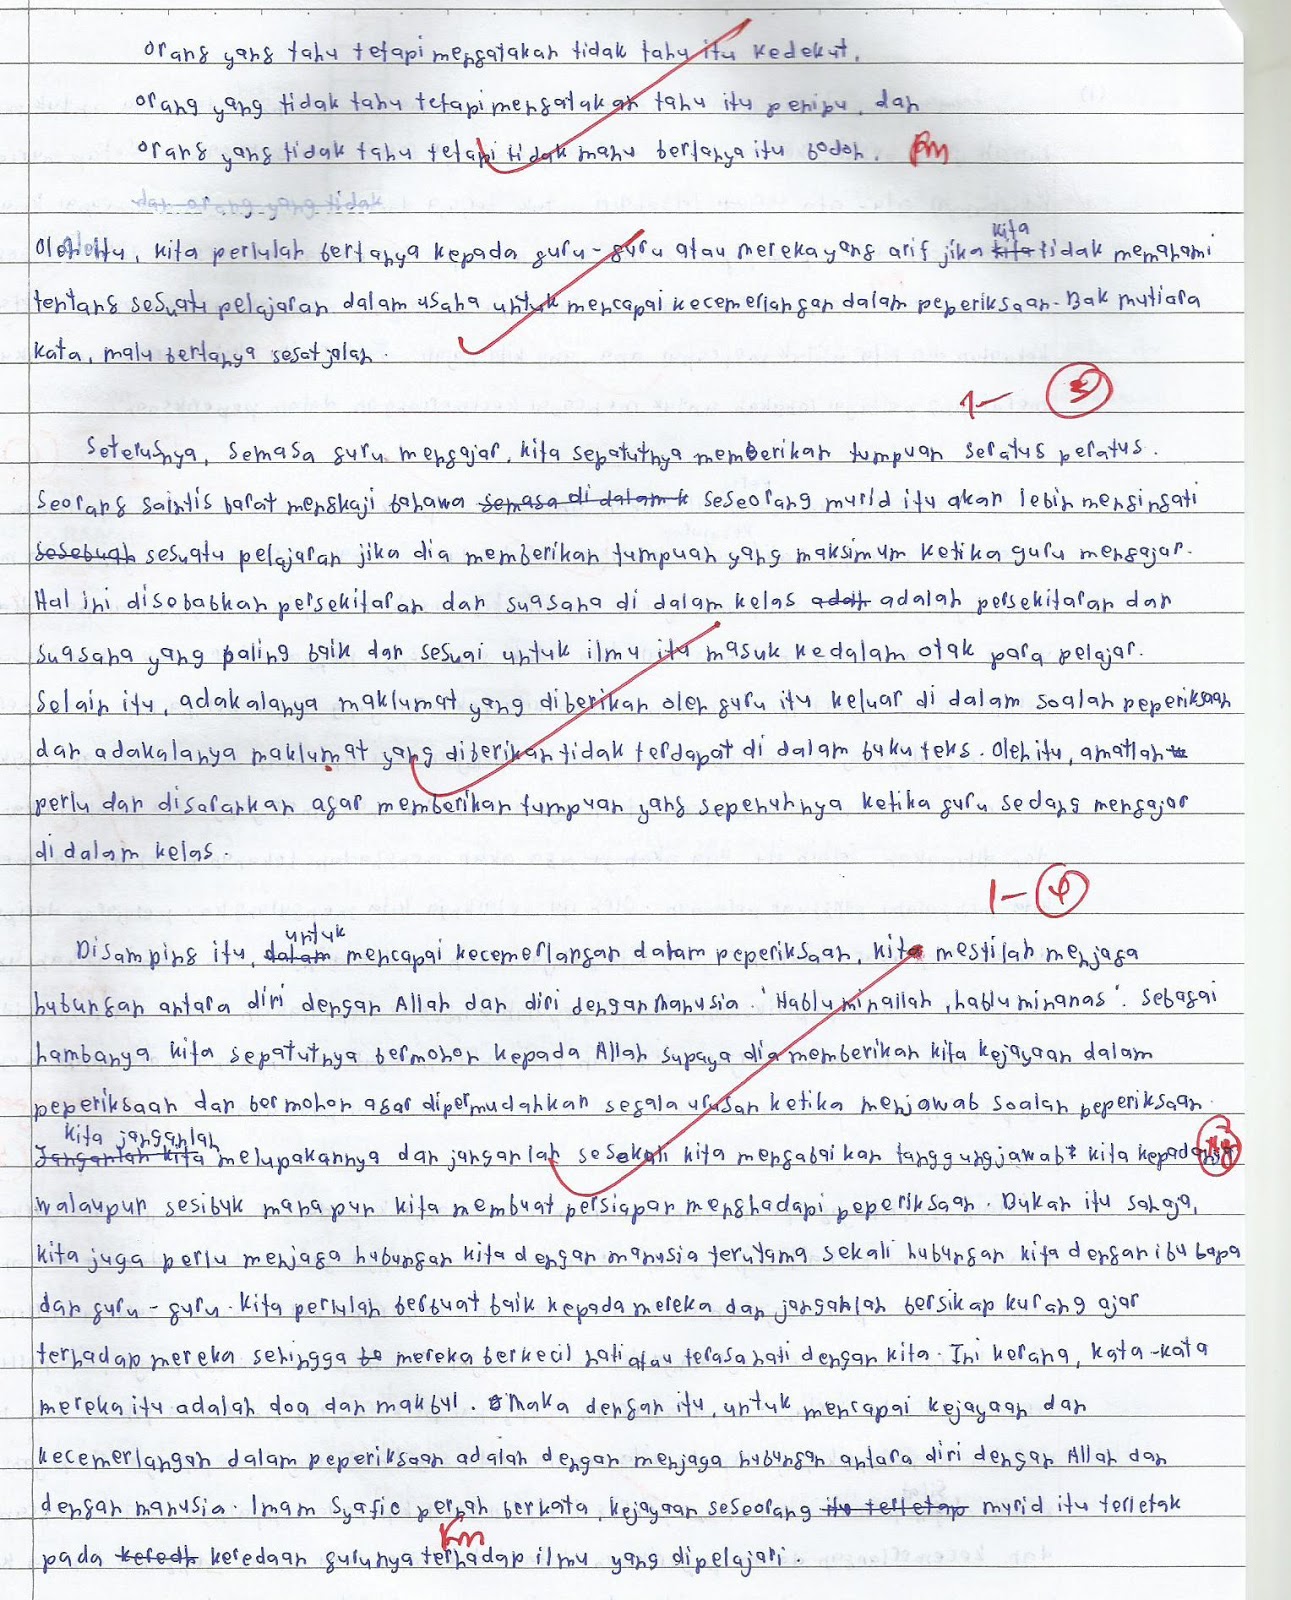 orang yang tahu tetapi mengatakan tidak tahu itu kedekut,
orang yang tidak tahu tetapi mengatakan tahu itu penipu, dan
orang yang tidak tahu tetapi tidak mahu bertanya itu bodoh.
Oleh itu, kita perlulah bertanya kepada guru-guru atau mereka yang arif jika kita tidak memahami
tentang sesuatu pelajaran dalam usaha untuk mencapai kecemerlangan dalam peperiksaan. Bak mutiara
kata, malu bertanya sesat jalan.
1- 3
Seterusnya, semasa guru mengajar, kita sepatutnya memberikan tumpuan seratus peratus.
Seorang saintis barat mengkaji bahawa semasa di dalam k seseorang murid itu akan lebih mengingati
sesebuah sesuatu pelajaran jika dia memberikan tumpuan yang maksimum ketika guru mengajar.
Hal ini disebabkan persekitaran dan suasana di dalam kelas adalh adalah persekitaran dan
suasana yang paling baik dan sesuai untuk ilmu itu masuk kedalam otak para pelajar.
Selain itu, adakalanya maklumat yang diberikan oleh guru itu keluar di dalam soalan peperiksaan
dan adakalanya maklumat yang diberikan tidak terdapat di dalam buku teks. Oleh itu, amatlah
perlu dan disarankan agar memberikan tumpuan yang sepenuhnya ketika guru sedang mengajar
di dalam kelas.
1- 4
Disamping itu, dalam untuk mencapai kecemerlangan dalam peperiksaan, kita mestilah menjaga
hubungan antara diri dengan Allah dan diri dengan manusia. 'Hablu minallah, hablu minanas'. Sebagai
hambanya kita sepatutnya bermohon kepada Allah supaya dia memberikan kita kejayaan dalam
peperiksaan dan bermohon agar dipermudahkan segala urusan ketika menjawab soalan peperiksaan.
Janganlah kita kita janganlah melupakannya dan janganlah sesekali kita mengabaikan tanggungjawab kita kepada
walaupun sesibuk mana pun kita membuat persiapan menghadapi peperiksaan. Bukan itu sahaja,
kita juga perlu menjaga hubungan kita dengan manusia terutama sekali hubungan kita dengan ibu bapa
dan guru-guru. Kita perlulah berbuat baik kepada mereka dan janganlah bersikap kurang ajar
terhadap mereka sehingga be mereka berkecil hati atau terasa hati dengan kita. Ini kerana, kata-kata
mereka itu adalah doa dan makbul. Maka dengan itu, untuk mencapai kejayaan dan
kecemerlangan dalam peperiksaan adalah dengan menjaga hubungan antara diri dengan Allah dan
dengan manusia. Imam Syafie pernah berkata, kejayaan seseorang itu terletap murid itu terletak
pada keredh keredaan gurunya terhadap ilmu yang dipelajari.